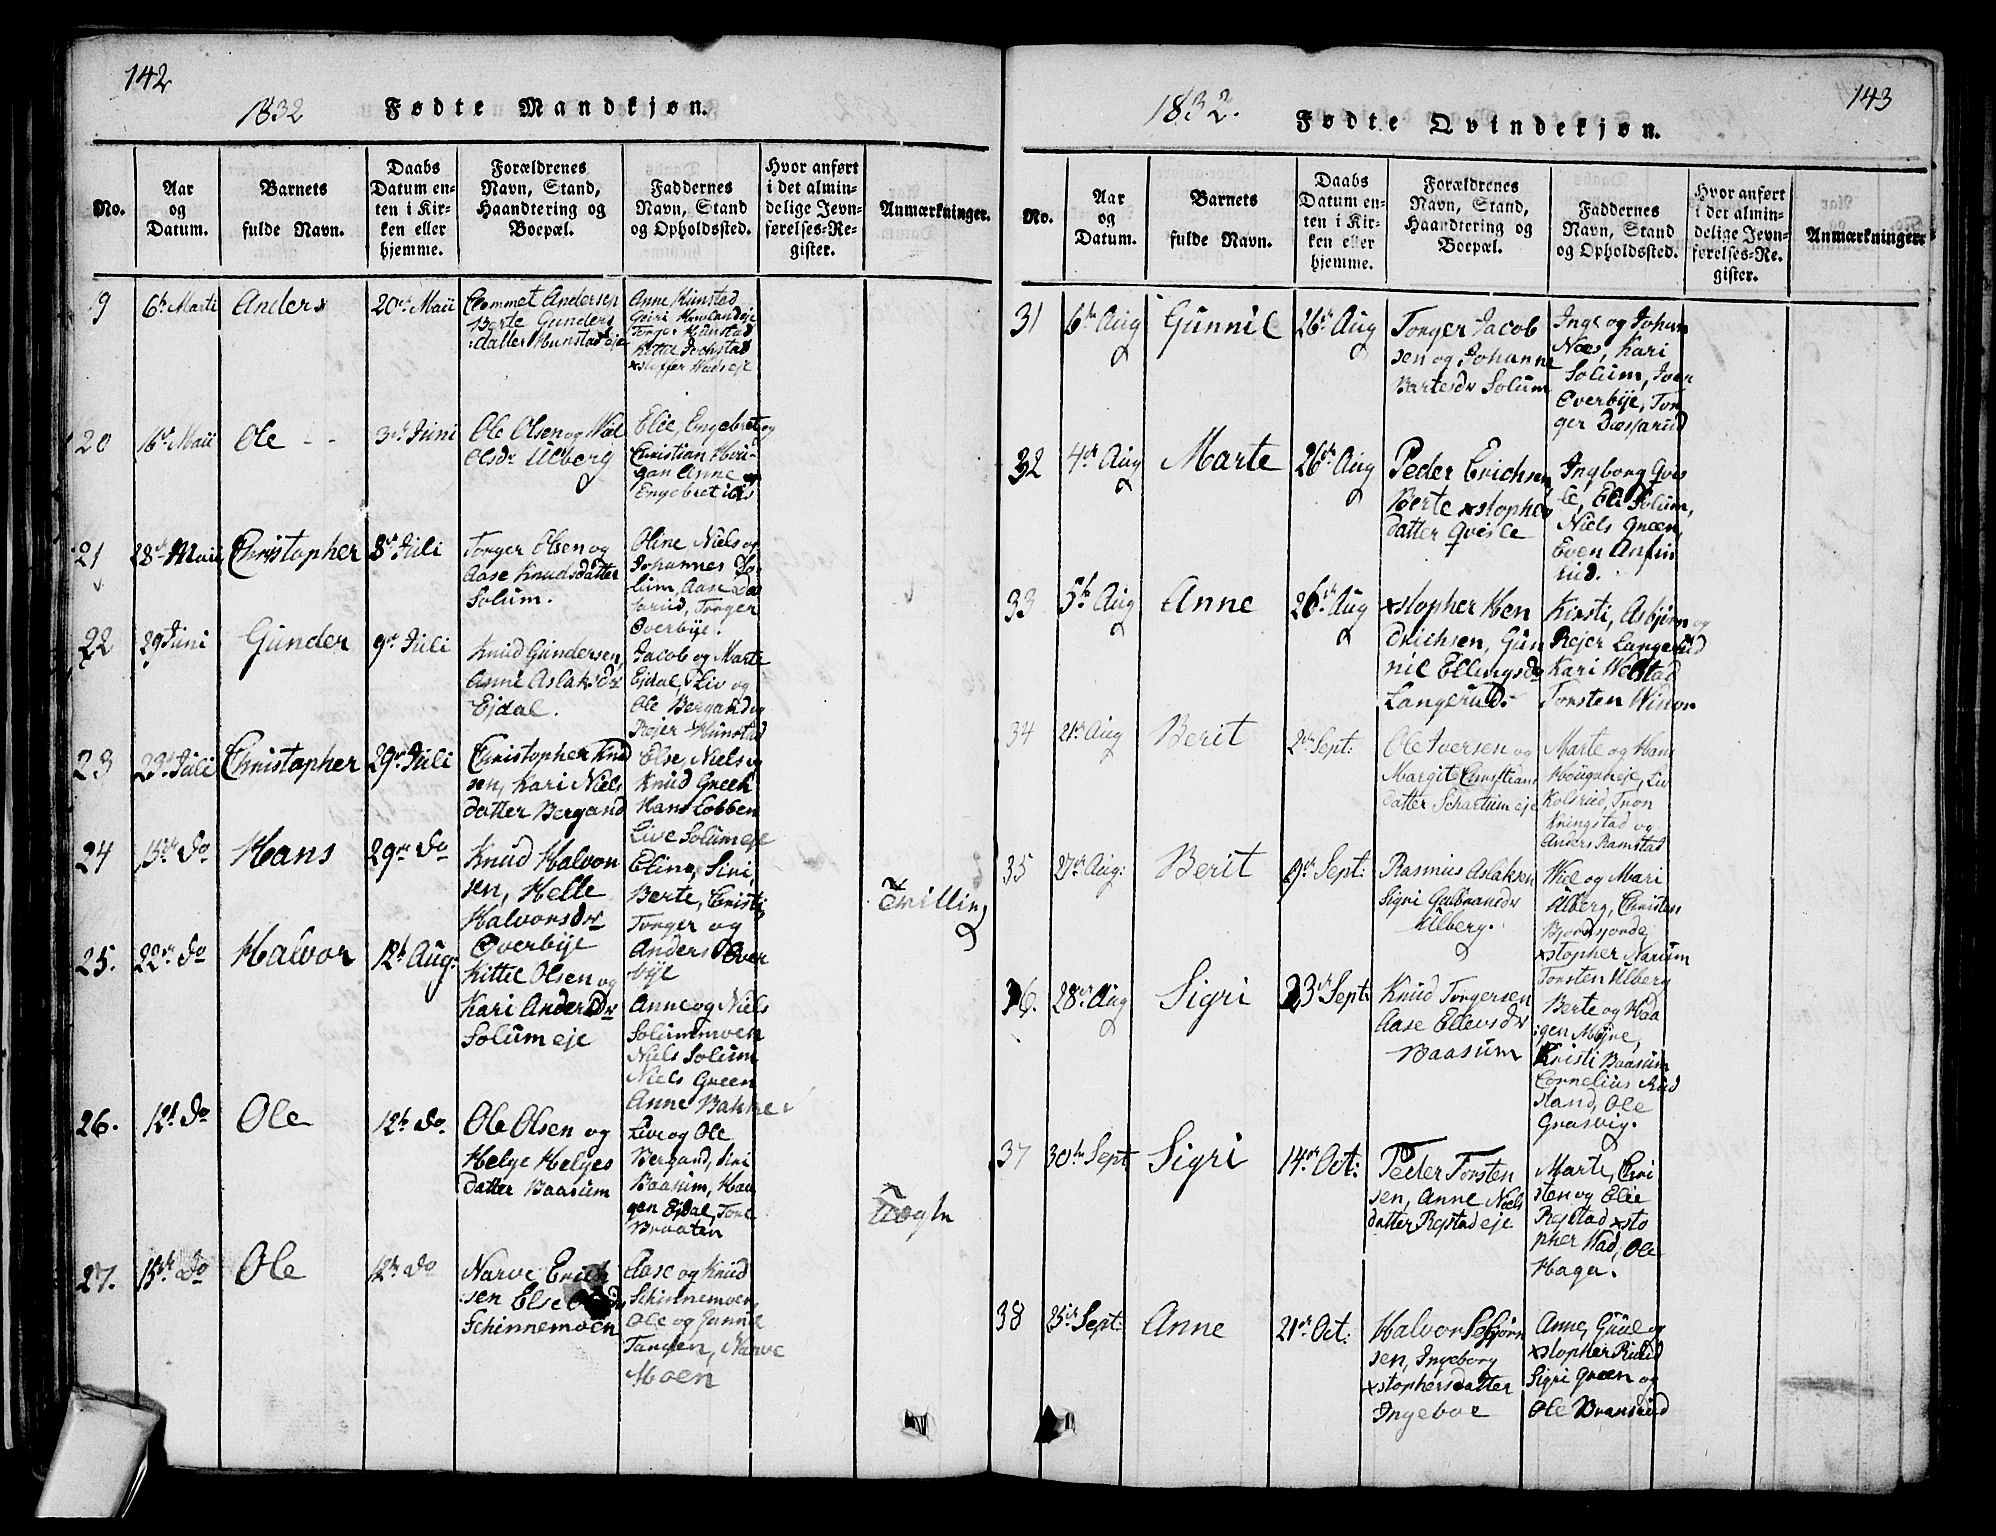 142
1832
Fødte Mandkjøn.
No.
Aar
og
Datum.
Barnets
fulde Navn.
Daabs
Datum en-
ten i Kir-
ken eller
hjemme.
Forældrenes
Navn, Stand,
Haandtering og
Boepæl.
Faddernes
Navn, Stand
og Opholdssted.
Hvor anført
i det almin-
delige Jevn-
førelses-Re-
gister.
Anmærkninger.
9
6te Marti
Anders
20de Maii
Andersen
Berte Gunders
datter Hunstad eje
Anne Hunstad
Torger Hunstad
20
16de Maii
Ole
3de Juni
Ole Olsen og
Olsdr Ulberg
Elie Engebret og
Christian
Anne og
Engebret
21
28de Maii
Christopher
8de Juli
Torger Olsen og
Aase Knudsdatter
Solum.
Oline Niels og
Johannes So-
lum, Aase Das-
sarud, Torger
Overbye.
22
29 Juni
Gunder
9de Juli
Knud Gundersen,
Anne Aslaksdr
Ejdal.
Jacob og Marte
Ejdal, Liv og
Ole Bergand og
Rejer Hunstad
23
23de Juli
Christopher
29de Juli
Christopher Knud
sen, Kari Niels
datter Bergand
Else, Niels og
Knud Green
Hans Lobben
Live Solumeje
24
15de do
Hans
29de do
Knud Halvor
sen, Helle
Halvorsdr
Overbye
Eline, Siri
Berte, Christi
Torger og
Anders Over
bye
Tvilling
25.
22de do
Halvor
12te Aug:
Kittil Olsen og
Kari Andersdr
Solum eje
Anne og Niels
Solummoen
Niels Solum
Niels Green
Anne Bakke
26.
12te do
Ole
12te do
Ole Olsen og
Helge Helges
datter Baasum
Live og Ole
Bergand, Siri
Baasum, Haa
gen Ejdal, Tore
Braaten
27.
15de do
Ole
12te do
Narve Erich
sen Else
Schinnemoen
Aase og Knud
Schinnemoen,
Ole og Gunnil
Tangen, Narve
Moen
143
1832.
Fødte Qvindekjøn.
No.
Aar
og
Datum.
Barnets
fulde Navn.
Daabs
Datum en-
ten i Kir-
ken eller
hjemme.
Forældrenes
Navn, Stand,
Haandtering og
Boepæl.
Faddernes
Navn, Stand
og Opholdssted.
Hvor anført
i det almin-
delige Jevn-
førelses-Re-
gister.
Anmærkninger.
31
6te Aug
Gunnil
26de Aug
Torger Jacob
sen og Johanne
Bartesdr Solum
Inge og Johan
Næs, Kari
Solum, Iver
Overbye, Tor
ger Dassarud
32
4de Aug
Marte
26de Aug
Peder Erichsen,
Berte xstophers
datter Qvisle
Ingborg Qvis
le, Eli Solum,
Niels Green,
Even Anfin
rud.
33
5te Aug
Anne
26de Aug
xstopher Hen
drichsen, Gun
nil Ellingsdr
Langerud.
Kirsti, Asbjørn og
Rejer Langerud
Kari Welstad
Torsten
34
21de Aug
Berit
2den Sept:
Ole Iversen og
Margit Christians
datter Schartum eje
Marte og Hans
Hougan eje, Liv
Kolsrud, Tron
Kringstad og
Anders Ramstad
35
27de Aug:
Berit
9de Sept:
Rasmus Aslaksen
Sigri Gulbransdr
Ulberg.
og Mari
Ulberg, Christen
xstopher Narum
Torsten Ulberg
36.
28de Aug
Sigri
23de Sept:
Knud Torgersen
Aase Ellevsdr
Baasum
Berte og Haa
gen Mojne,
Kristi Baasum
Cornelius Rud
stand, Ole
Grasvig.
37
30te Sept
Sigri
14de Oct:
Peder Torsten
sen, Anne Niels
datter Rystad eje
Marte, Chri
sten og Elie
Rystad xsto
pher Wad, Ole
Haga.
38
25de Sept:
Anne
21de Oct:
Halvor
sen, Ingeborg
xstophersdatter
Ingeboe
Anne, Guul og
xstopher Ruud
Sigri Green og
Ole Bransrud